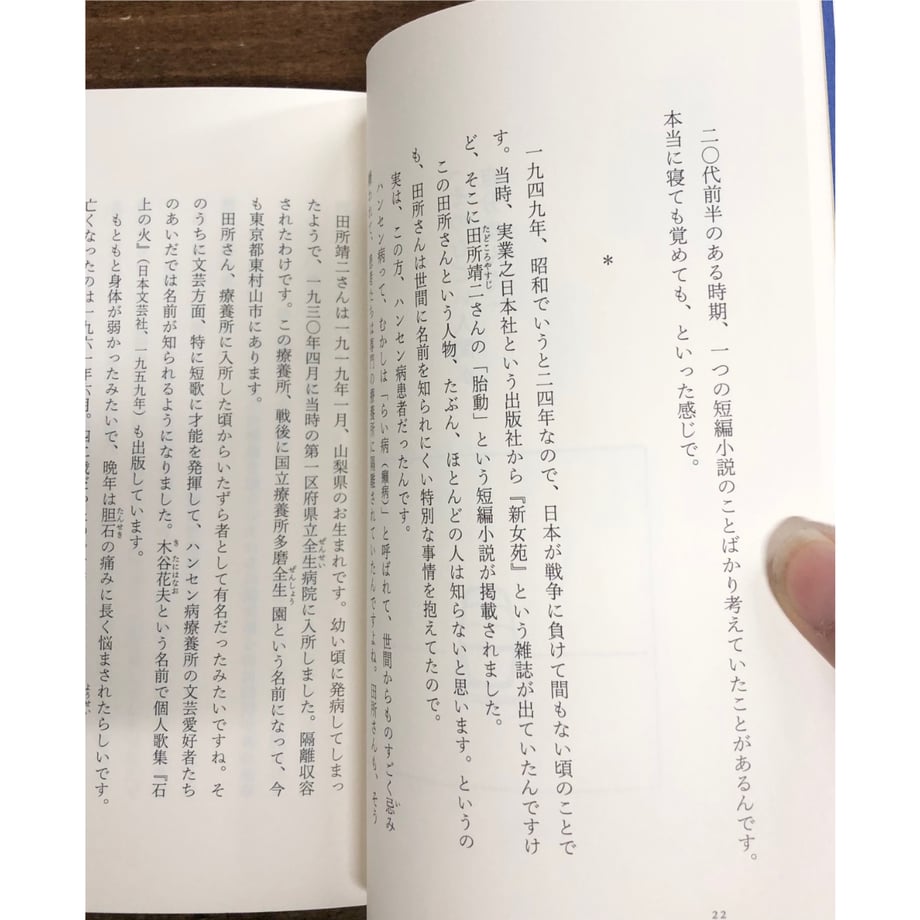 二〇代前半のある時期、一つの短編小説のことばかり考えていたことがあるんです。
本当に寝ても覚めても、といった感じで。
*
一九四九年、昭和でいうと二四年なので、日本が戦争に負けて間もない頃のことで
す。当時、実業之日本社という出版社から『新女苑』という雑誌が出ていたんですけ
ど、そこに田所靖二さんの「胎動」という短編小説が掲載されました。
たどころやすじ
この田所さんという人物、たぶん、ほとんどの人は知らないと思います。というの
も、田所さんは世間に名前を知られにくい特別な事情を抱えてたので。
実は、この方、ハンセン病患者だったんです。
ハンセン病って、むかしは「らい病（癩病）」と呼ばれて、世間からものすごく忌み
い
専門の療養所に隔離されていたんですよね。田所さんも、そう
22
田所靖二さんは一九一九年一月、山梨県のお生まれです。幼い頃に発病してしまっ
たようで、一九三〇年四月に当時の第一区府県立全生病院に入所しました。隔離収容
ぜんせい
されたわけです。この療養所、戦後に国立療養所多磨全生園という名前になって、今
ぜんしょう
も東京都東村山市にあります。
田所さん、療養所に入所した頃からいたずら者として有名だったみたいですね。そ
のうちに文芸方面、特に短歌に才能を発揮して、ハンセン病療養所の文芸愛好者たち
のあいだでは名前が知られるようになりました。木谷花夫という名前で個人歌集『石
きたにはなお
上の火』（日本文芸社、一九五九年）も出版しています。
もともと身体が弱かったみたいで、晩年は胆石の痛みに長く悩まされたらしいです。
たんせき
亡くなったのは一九六一年六月。